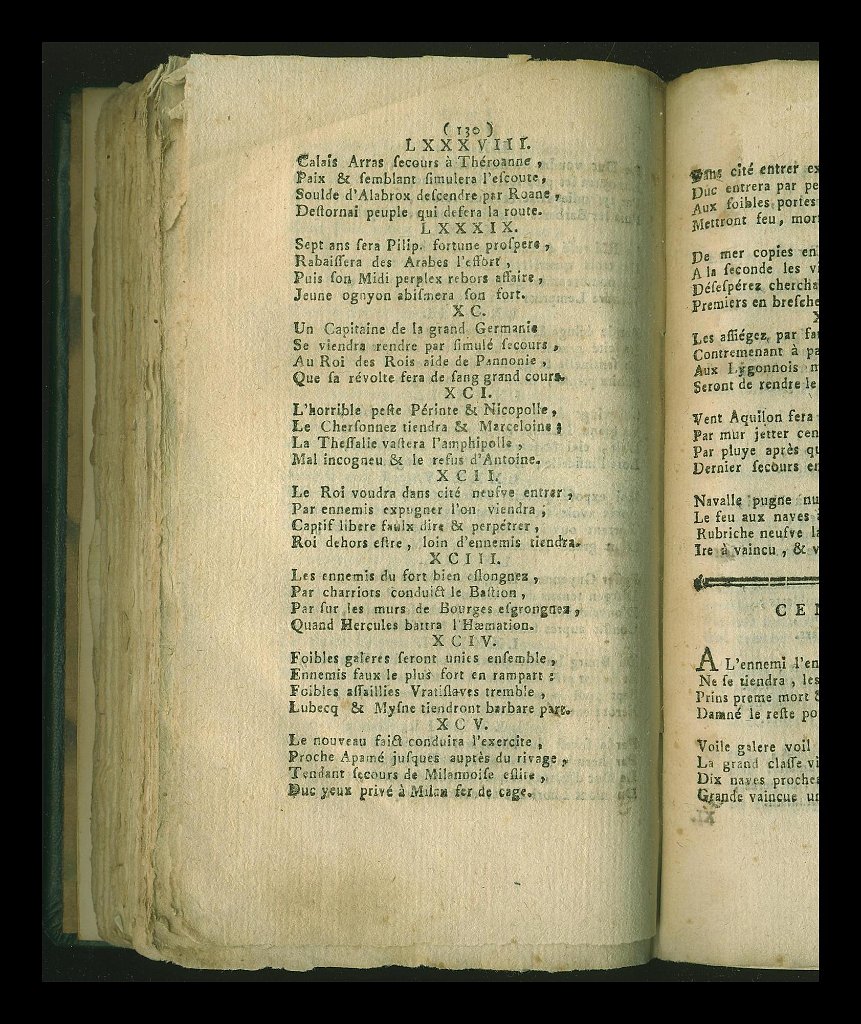 (130)
LXXXVIII.
Calais Arras ſecours à Théroanne,
Paix & ſemblant ſimulera l'eſcoute,
Soulde d'Alabrox deſcendre par Roane,
Deſtornai peuple qui defera la route.
LXXXIX.
Sept ans ſera Pilip. fortune proſpere,
Rabaiſſera des Arabes l'effort,
Puis ſon Midi perplex rebors affaire,
Jeune ognyon abiſmera ſon fort.
XC.
Un Capitaine de la grand Germanie
Se viendra rendre par ſimulé ſecours,
Au Roi des Rois aide de Pannonie,
Que ſa révolte fera de ſang grand cours.
XCI.
L'horrible peſte Périnte & Nicopolle,
Le Cherſonnez tiendra & Marceloine;
La Theſſalie vaſtera l'amphipolle,
Mal incogneu & le refus d'Antoine.
XCII.
Le Roi voudra dans cité neufve entrer,
Par ennemis expugner l'on viendra,
Captif libere faulx dire & perpétrer,
Roi dehors eſtre, loin d'ennemis tiendra.
XCIII.
Les ennemis du fort bien eſlongnez,
Par charriots conduict le Baſtion,
Par ſur les murs de Bourges eſgrongnez,
Quand Hercules battra l'Hæmation.
XCIV.
Foibles galeres ſeront unies enſemble,
Ennemis faux le plus fort en rampart:
Foibles aſſaillies Vratiſlaves tremble,
Lubecq & Myſne tiendront barbare part.
XCV.
Le nouveau faict conduira l'exercite,
Proche Apamé juſques auprès du rivage,
Tendant ſecours de Milannoiſe eſlite,
Duc yeux privé à Milan fer de cage.
Dans cité entrer
Duc entrera par
Aux foibles portes
Mettront feu,
De mer copies
A la ſeconde les
Déſeſpérez
Premiers en breſche
Les aſſiégez par
Contremenant à
Aux Lygonnois
Seront de rendre le
Vent Aquilon fera
Par mur jetter
Par pluye après
Dernier ſecours
Navalle pugne
Le feu aux naves
Rubriche neufve
Ire à vaincu, &
CEN
A L'ennemi
Ne ſe tiendra,
Prins preme mort
Damné le reſte
Voile galere
La grand claſſe
Dix naves proches
Grande vaincue